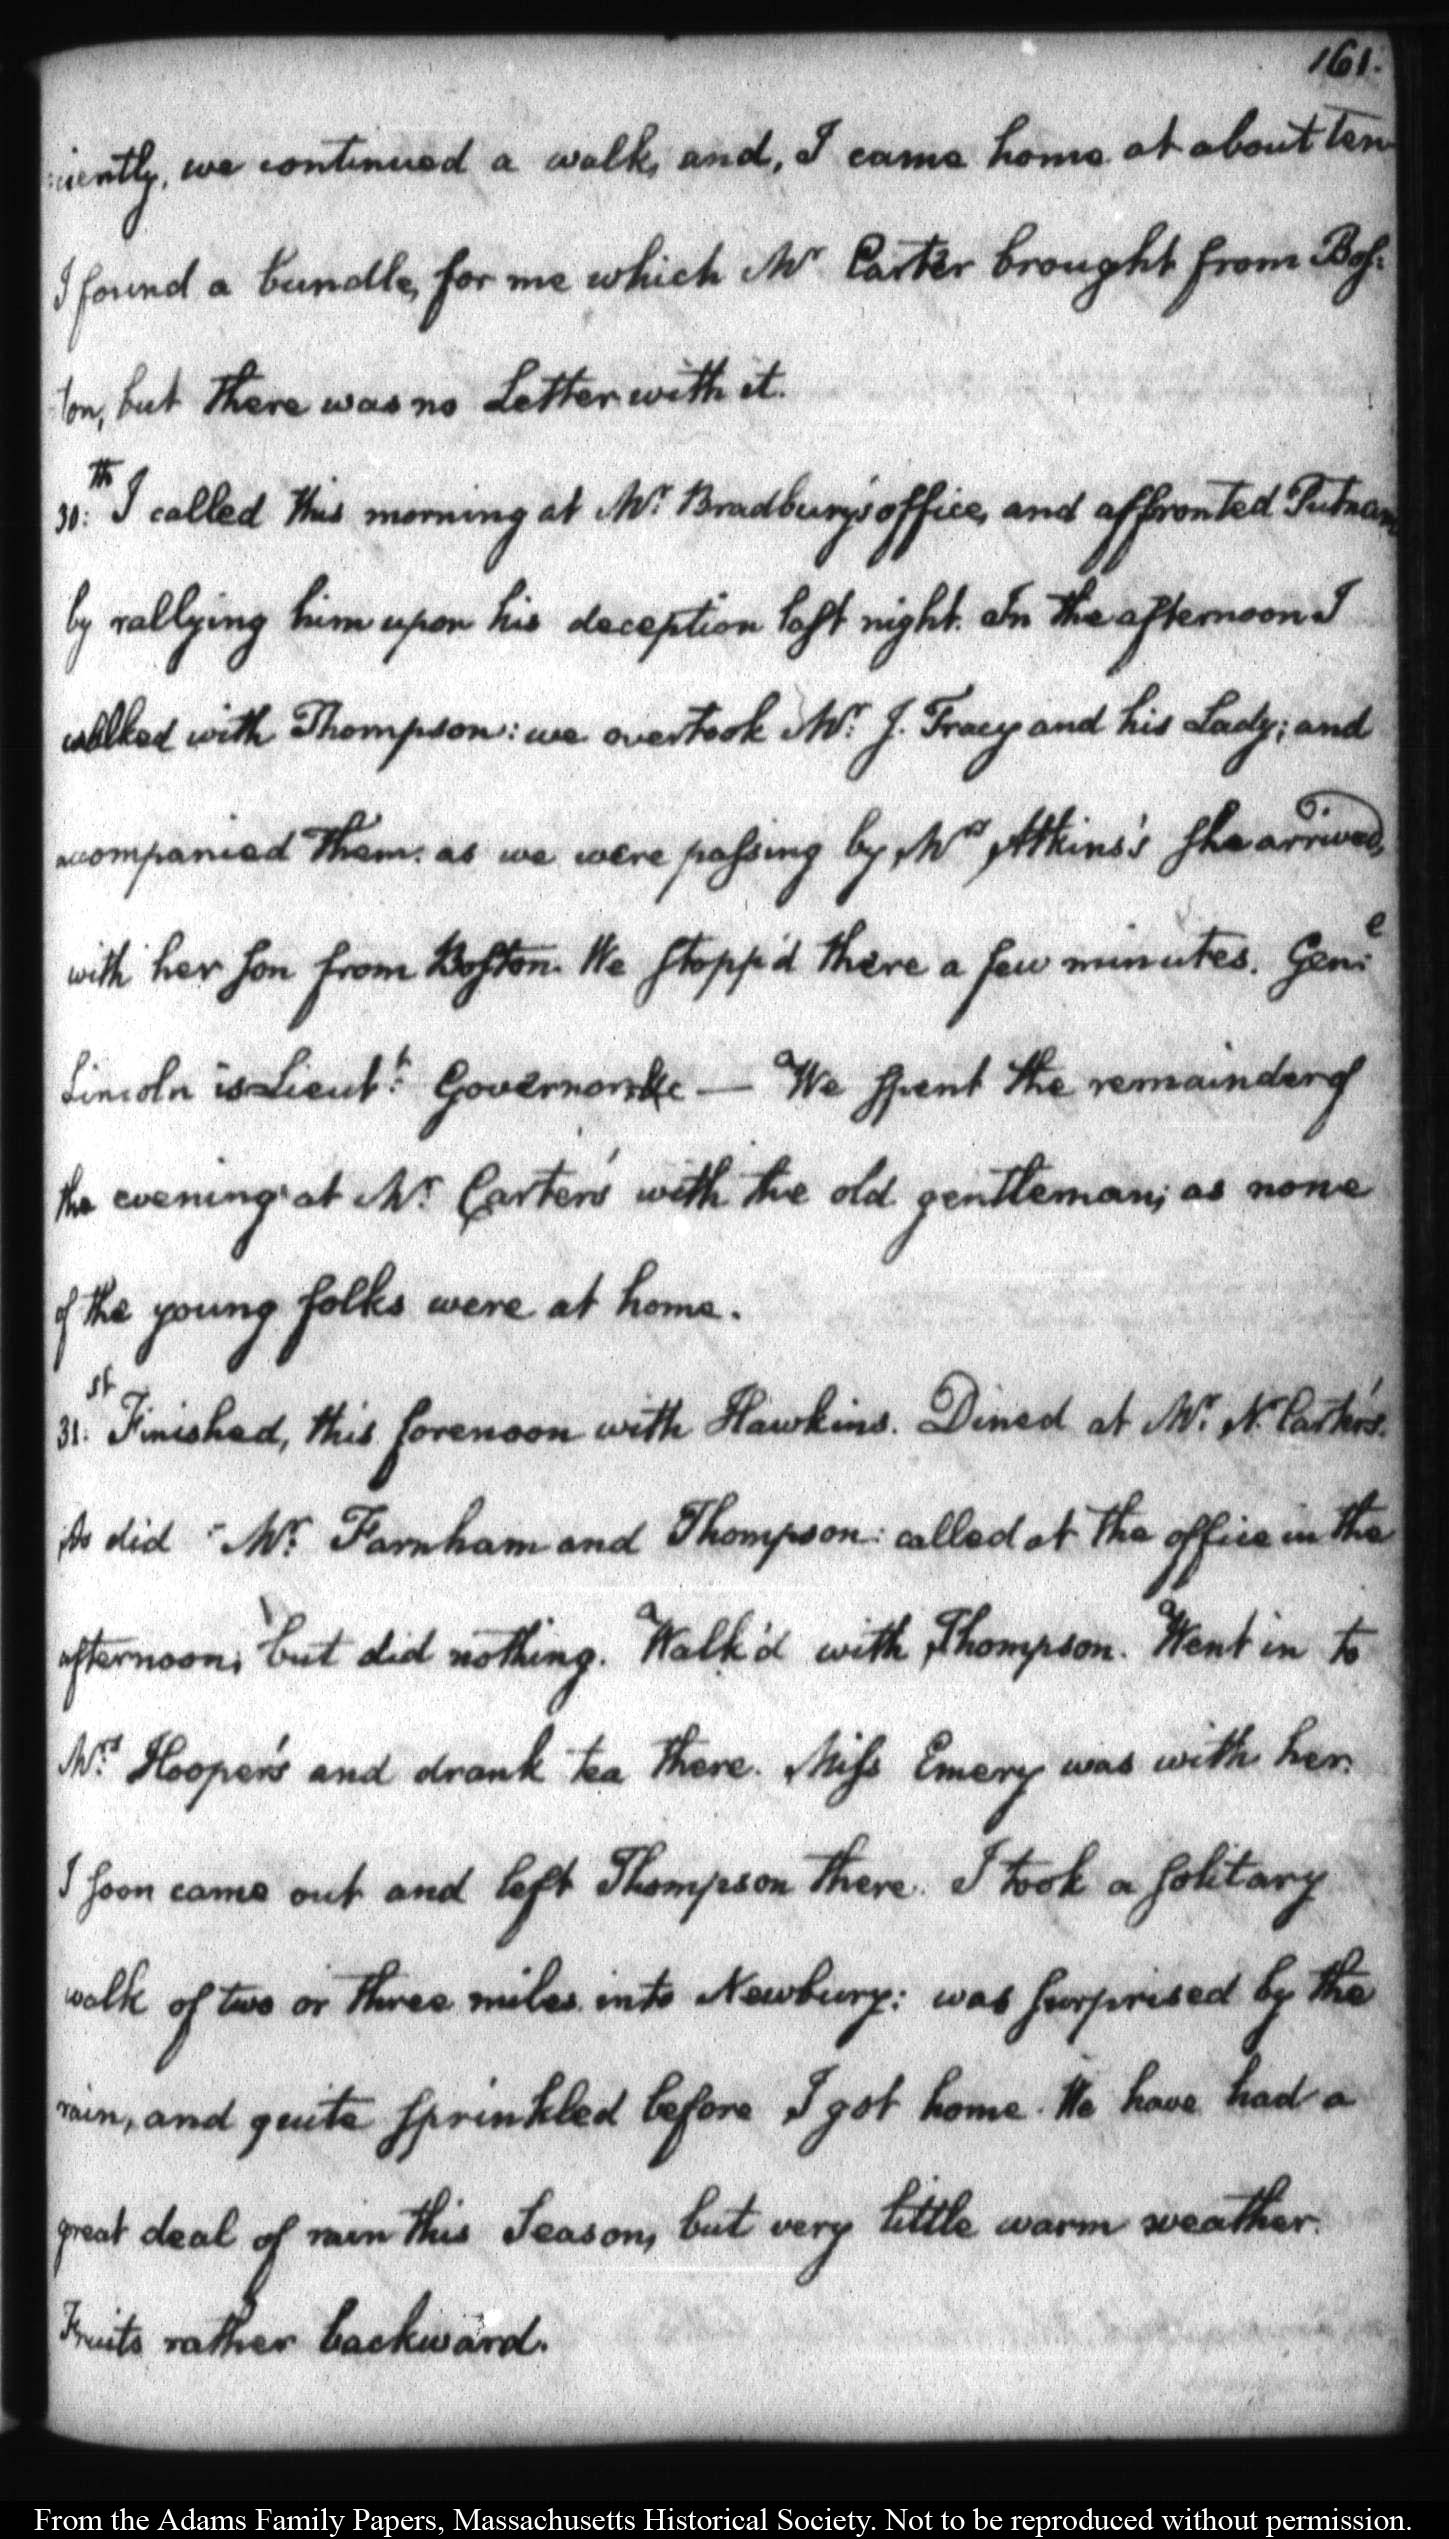 161.
:iently, we continued a walk, and, I came home at about ten
I found a bundle, for me which Mr Carter brought from Bos:
:ton, but there was no Letter with it.
30:th I called this morning at Mr. Bradbury's office, and affronted Putnam
by rallying him upon his deception last night. In the afternoon I
walked with Thompson: we overtook Mr. J. Tracy and his Lady; and
accompanied them: as we were passing by Mrs Atkins's she arrived,
with her son from Boston. We stopp'd there a few minutes. Genl
Lincoln is Lieut.t Governor &c — We spent the remainder of
the evening at Mr. Carter's with the old gentleman; as none
of the young folks were at home.
31.st Finished, this forenoon with Hawkins. Dined at Mr. N. Carter's.
As did Mr. Farnham and Thompson: called at the office in the
afternoon, but did nothing. Walk'd with Thompson. Went in to
Mrs. Hooper's and drank tea there. Miss Emery was with her.
I soon came out and left Thompson there. I took a solitary
walk of two or three miles into Newbury: was surprised by the
rain, and quite sprinkled before I got home. We have had a
great deal of rain this Season, but very little warm weather.
Fruits rather backward.
From the Adams Family Papers, Massachusetts Historical Society. Not to be reproduced without permission.